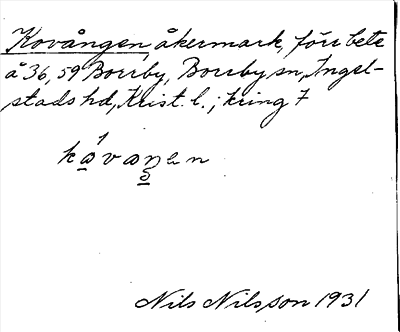 Kovången, åkermark, förr bete
å 36, 59 Borrby, Borrby sn, Ingel-
stads hd, Krist. l.; kring 7
kåvaŋen
Nils Nilsson 1931